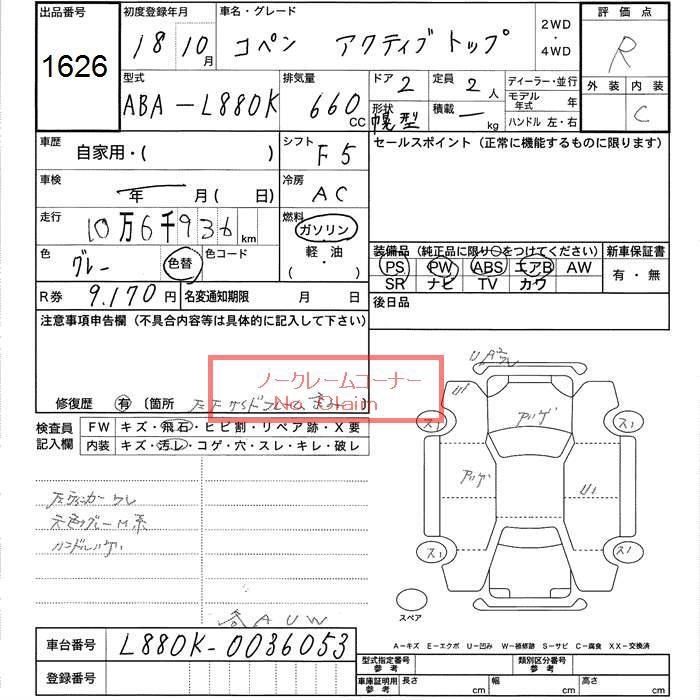 出品番号 初度登録年月 車名・グレード 2WD ・ 4WD 評価点
1626 18 10月 コペン アクティブトップ R
外装 内装
C
型式 排気量 ドア 2 定員 2人 ディーラー・並行
ABA-L880K 660cc 形状 幌型 積載 ー kg モデル年式 年
ハンドル 左・右
車歴 自家用・( ) シフト F5 セールスポイント（正常に機能するものに限ります）
車検 年 月(日) 冷房 AC
走行 10万6千936km 燃料 ガソリン・軽油・( )
色 グレー 色替 色コード
装備品（純正品に限り○をつけてください） 新車保証書
PS PW ABS エアB AW 有・無
SR ナビ TV カワ
R券 9,170円 名変通知期限 月 日 後日品
注意事項申告欄（不具合内容等は具体的に記入して下さい）
ノークレームコーナー
No Claim
修復歴 有 〔箇所
検査員記入欄 FW キズ・飛石・ヒビ割・リペア跡・X要
内装 キズ・汚レ・コゲ・穴・スレ・キレ・破レ
元色グレーM系
AUW
スペア
A-キズ E-エクボ U-凹み W-補修跡 S-サビ C-腐食 XX-交換済
車台番号 L880K-0036053
登録番号
型式指定番号 参考 類別区分番号 参考
車庫証明用 参考 長さ cm 幅 cm 高さ cm